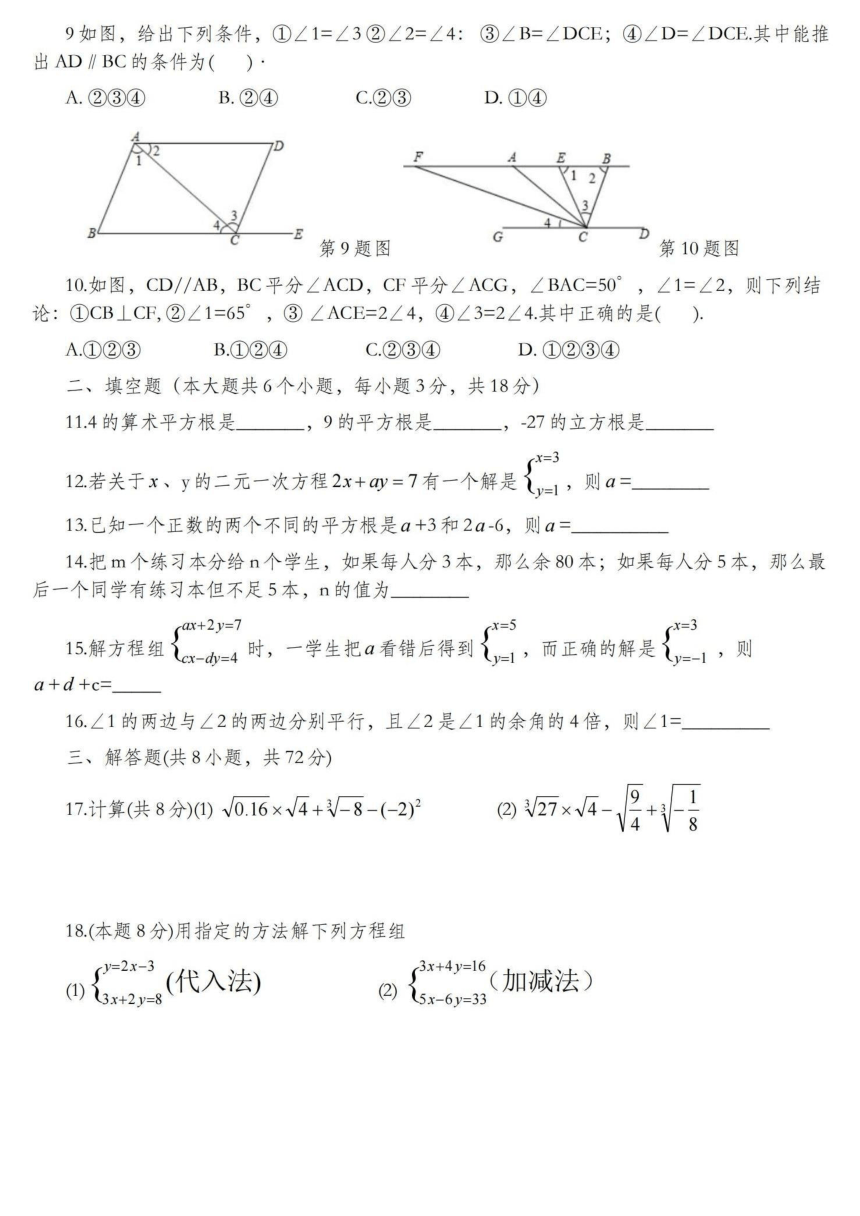 9如图，给出下列条件，①∠1=∠3②∠2=∠4： ③∠B=∠DCE；④∠D=∠DCE.其中能推
出 AD∥BC 的条件为( )·
A. ②③④ B. ②④ C.②③ D. ①④
A 2 D 1 3 4 B C E
第9题图
F A E B 1 2 3 4 G C D
第10题图
10.如图，CD//AB，BC平分∠ACD，CF平分∠ACG，∠BAC=50°，∠1=∠2，则下列结
论：①CB⊥CF,②∠1=65°，③ ∠ACE=2∠4，④∠3=2∠4.其中正确的是( ).
A.①②③ B.①②④ C.②③④ D. ①②③④
二、填空题（本大题共6个小题，每小题3分，共18分）
11.4的算术平方根是______，9的平方根是______，-27的立方根是______
12.若关于x、y的二元一次方程2x+ay=7有一个解是{x=3 y=1，则a=______
13.已知一个正数的两个不同的平方根是a+3和2a-6，则a=______
14.把m个练习本分给n个学生，如果每人分3本，那么余80本；如果每人分5本，那么最
后一个同学有练习本但不足5本，n的值为______
15.解方程组{ax+2y=7 cx-dy=4 时，一学生把a看错后得到{x=5 y=1，而正确的解是{x=3 y=-1，则
a+d+c=____
16.∠1的两边与∠2的两边分别平行，且∠2是∠1的余角的4倍，则∠1=______
三、解答题(共8小题，共72分)
17.计算(共8分)(1) √0.16×√4+∛-8-(-2)² (2) ∛27×√4-√(9/4)+∛(-1/8)
18.(本题8分)用指定的方法解下列方程组
(1) {y=2x-3 3x+2y=8 (代入法) (2) {3x+4y=16 5x-6y=33（加减法）